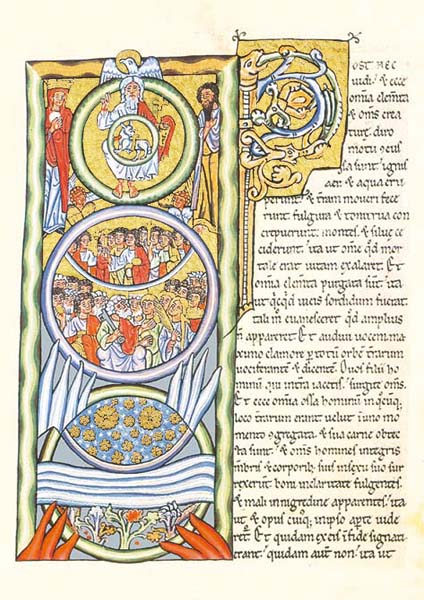 POST HEC
uidi & ecce
omia elemta
& omis crea
ture diro
motu ꝯcus
sa sunt. ignis
aer & aqua eru
perunt & tram moueri fece
runt. fulgura & tonitrua con
crepuerunt. montes & silue ce
ciderunt. ita ut ome qd mor
tale erat uitam exalaret. Et
omnia elemta purgata sunt. ita
ut qcqd in eis sordidum fuerat
tali m euanesceret qd amplius n
appareret. Et audiui uocem ma
ximo clamore p totu orbe trarum
uociferante & dicente. O uos filii ho
minu qui in tra iacetis. surgite oms.
Et ecce omia ossa hominum in quocuq;
loco trarum erant uelut in uno mo
mento ꝯgregata & sua carne obte
cta sunt. & oms homines integris
mbris & corporib; suis in sexu suo sur
rexerunt. boni in claritate fulgentes.
& mali in nigredine apparentes. ita
ut & opus cuiq; in ipso apte uide
ret. Et quidam ex eis in fide signati
erant. quidam aut non. ita ut